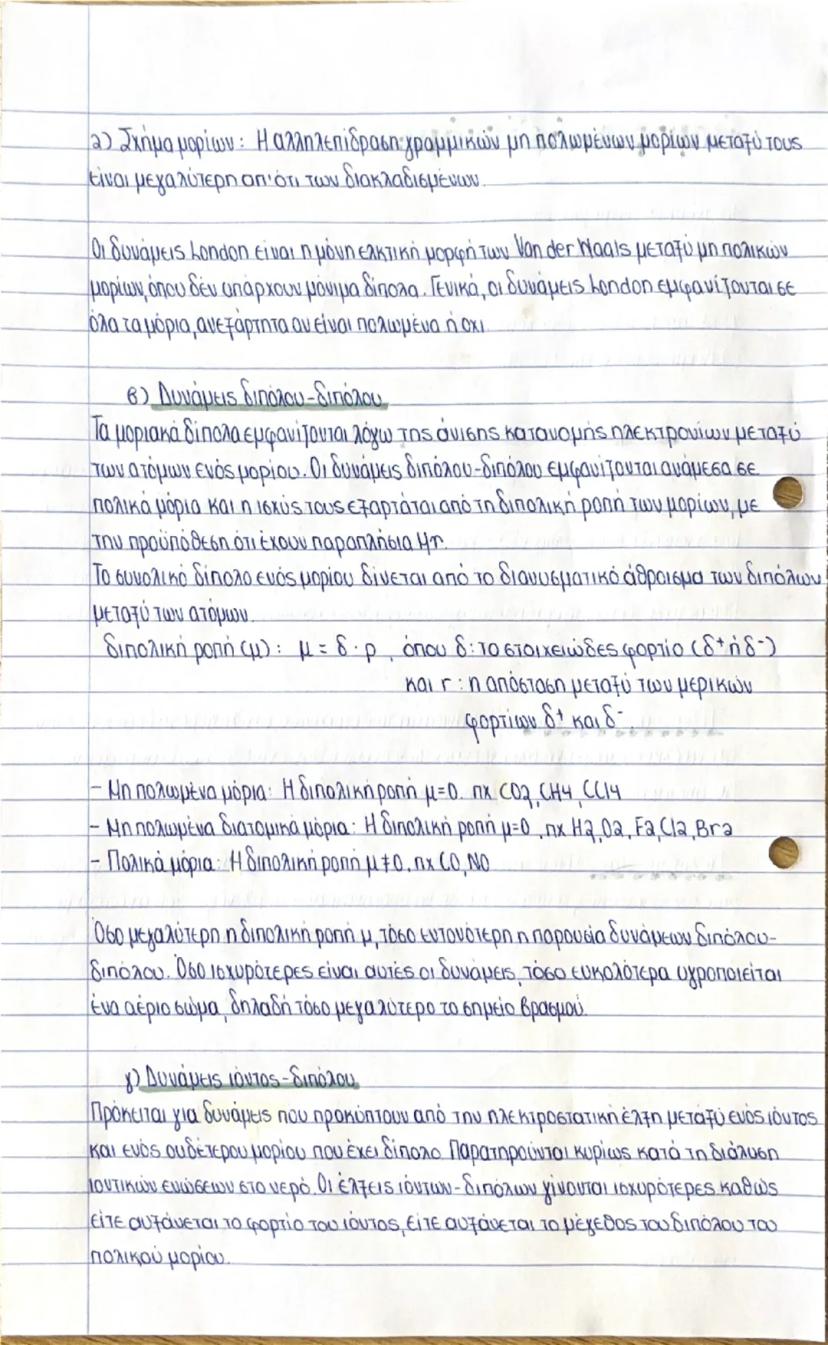 2) Σχήμα μορίων: Η αλληλεπίδραση γραμμικών μη πολωμένων μορίων μεταξύ τους
είναι μεγαλύτερη απ' ότι των διακλαδισμένων.
Οι δυνάμεις London είναι η μόνη ελκτική μορφή των Van der Waals μεταξύ μη πολικών
μορίων, όπου δεν υπάρχουν μόνιμα δίπολα. Γενικά, οι δυνάμεις London εμφανίζονται σε
όλα τα μόρια, ανεξάρτητα αν είναι πολωμένα ή όχι
β) Δυνάμεις διπόλου-διπόλου
Τα μοριακά δίπολα εμφανίζονται λόγω της άνισης κατανομής ηλεκτρονίων μεταξύ
των ατόμων ενός μορίου. Οι δυνάμεις διπόλου-διπόλου εμφανίζονται ανάμεσα σε
πολικά μόρια και η ισχύς τους εξαρτάται από τη διπολική ροπή των μορίων, με
την προϋπόθεση ότι έχουν παραπλήσια Mr.
Το συνολικό δίπολο ενός μορίου δίνεται από το διανυσματικό άθροισμα των διπόλων
μεταξύ των ατόμων.
διπολική ροπή (μ): μ = δ · ρ, όπου δ: το στοιχειώδες φορτίο (δ⁺ ή δ⁻)
και r: η απόσταση μεταξύ των μερικών
φορτίων δ⁺ και δ⁻.
- Μη πολωμένα μόρια: Η διπολική ροπή μ=0. πχ CO2, CH4, CCl4
- Μη πολωμένα διατομικά μόρια: Η διπολική ροπή μ=0. πχ H2, O2, F2, Cl2, Br2
- Πολικά μόρια: Η διπολική ροπή μ≠0. πχ CO, NO
Όσο μεγαλύτερη η διπολική ροπή μ, τόσο εντονότερη η παρουσία δυνάμεων διπόλου-
διπόλου. Όσο ισχυρότερες είναι αυτές οι δυνάμεις, τόσο ευκολότερα υγροποιείται
ένα αέριο σώμα, δηλαδή τόσο μεγαλύτερο το σημείο βρασμού.
γ) Δυνάμεις ιόντος-διπόλου
Πρόκειται για δυνάμεις που προκύπτουν από την ηλεκτροστατική έλξη μεταξύ ενός ιόντος
και ενός ουδέτερου μορίου που έχει δίπολο. Παρατηρούνται κυρίως κατά τη διάλυση
ιοντικών ενώσεων στο νερό. Οι έλξεις ιόντων-διπόλων γίνονται ισχυρότερες καθώς
είτε αυξάνεται το φορτίο του ιόντος, είτε αυξάνεται το μέγεθος του διπόλου του
πολικού μορίου.